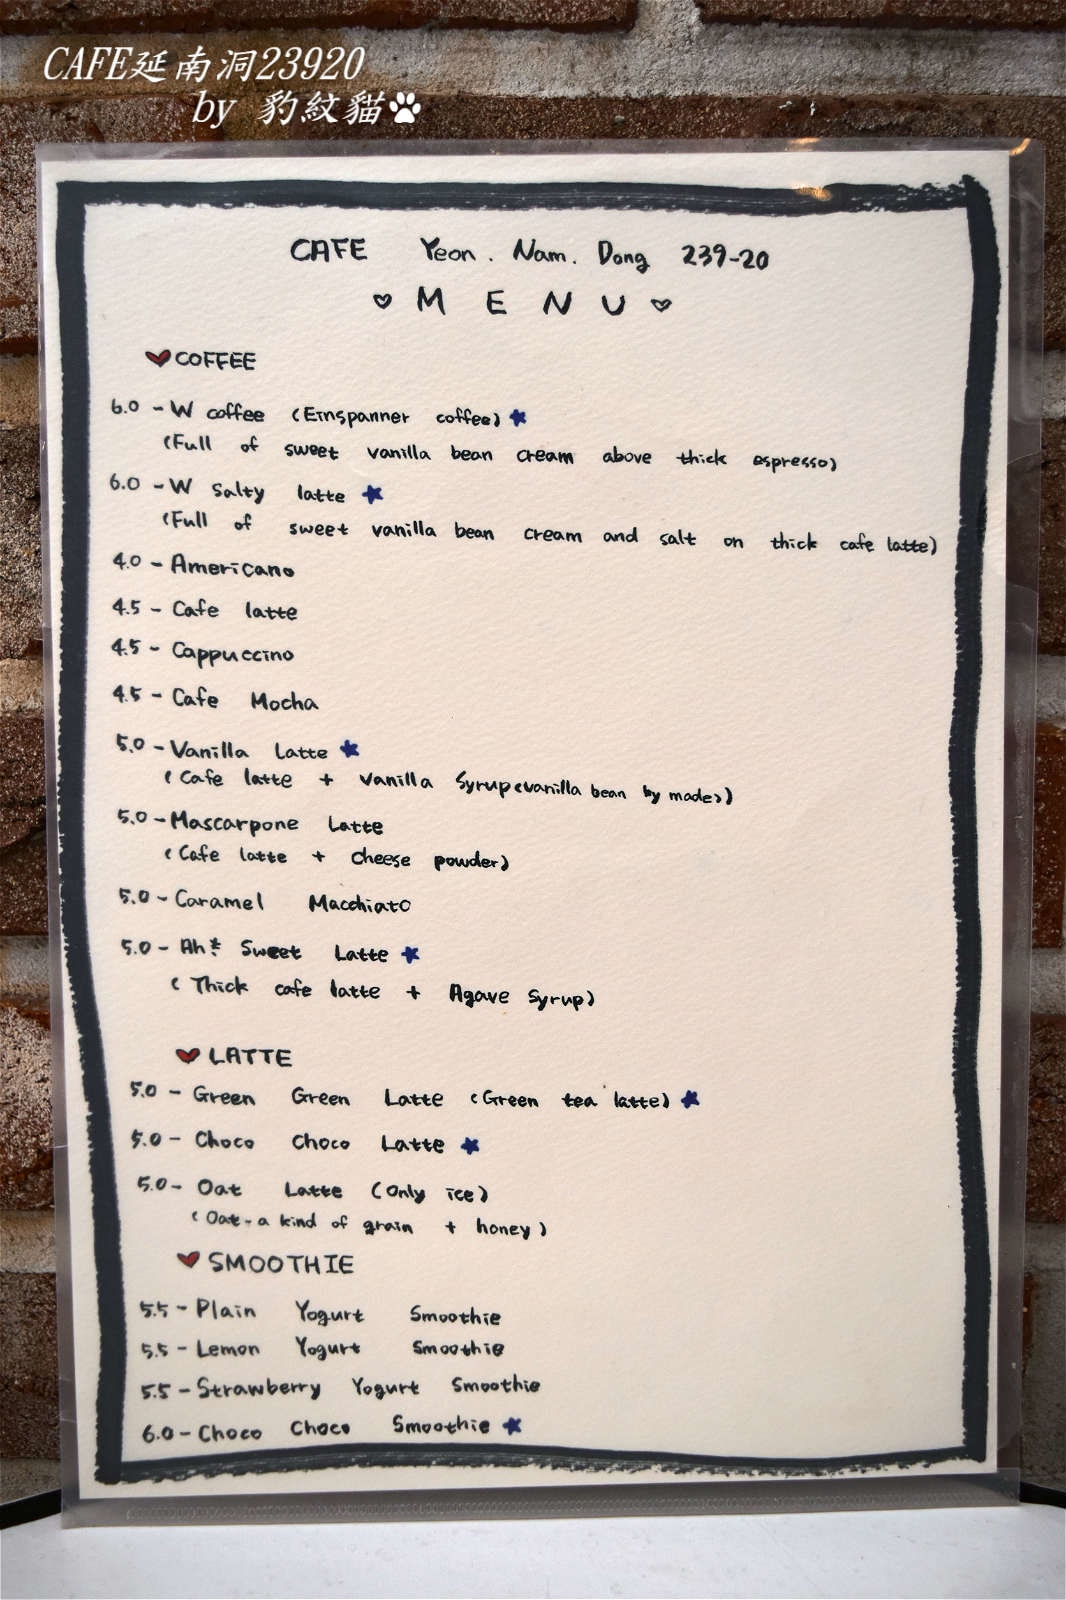 CAFE延南洞23920
by 豹紋貓
CAFE Yeon. Nam. Dong 239-20
MENU
COFFEE
6.0 - W coffee (Einspanner coffee)
(Full of sweet vanilla bean cream above thick espresso)
6.0 - W Salty latte
(Full of sweet vanilla bean cream and salt on thick cafe latte)
4.0 - Americano
4.5 - Cafe latte
4.5 - Cappuccino
4.5 - Cafe Mocha
5.0 - Vanilla Latte
(Cafe latte + Vanilla Syrup<vanilla bean by made>)
5.0 - Mascarpone Latte
(Cafe latte + cheese powder)
5.0 - Caramel Macchiato
5.0 - Ah! Sweet Latte
(Thick cafe latte + Agave Syrup)
LATTE
5.0 - Green Green Latte (Green tea latte)
5.0 - Choco Choco Latte
5.0 - Oat Latte (Only ice)
(Oat - a kind of grain + honey)
SMOOTHIE
5.5 - Plain Yogurt Smoothie
5.5 - Lemon Yogurt Smoothie
5.5 - Strawberry Yogurt Smoothie
6.0 - Choco Choco Smoothie